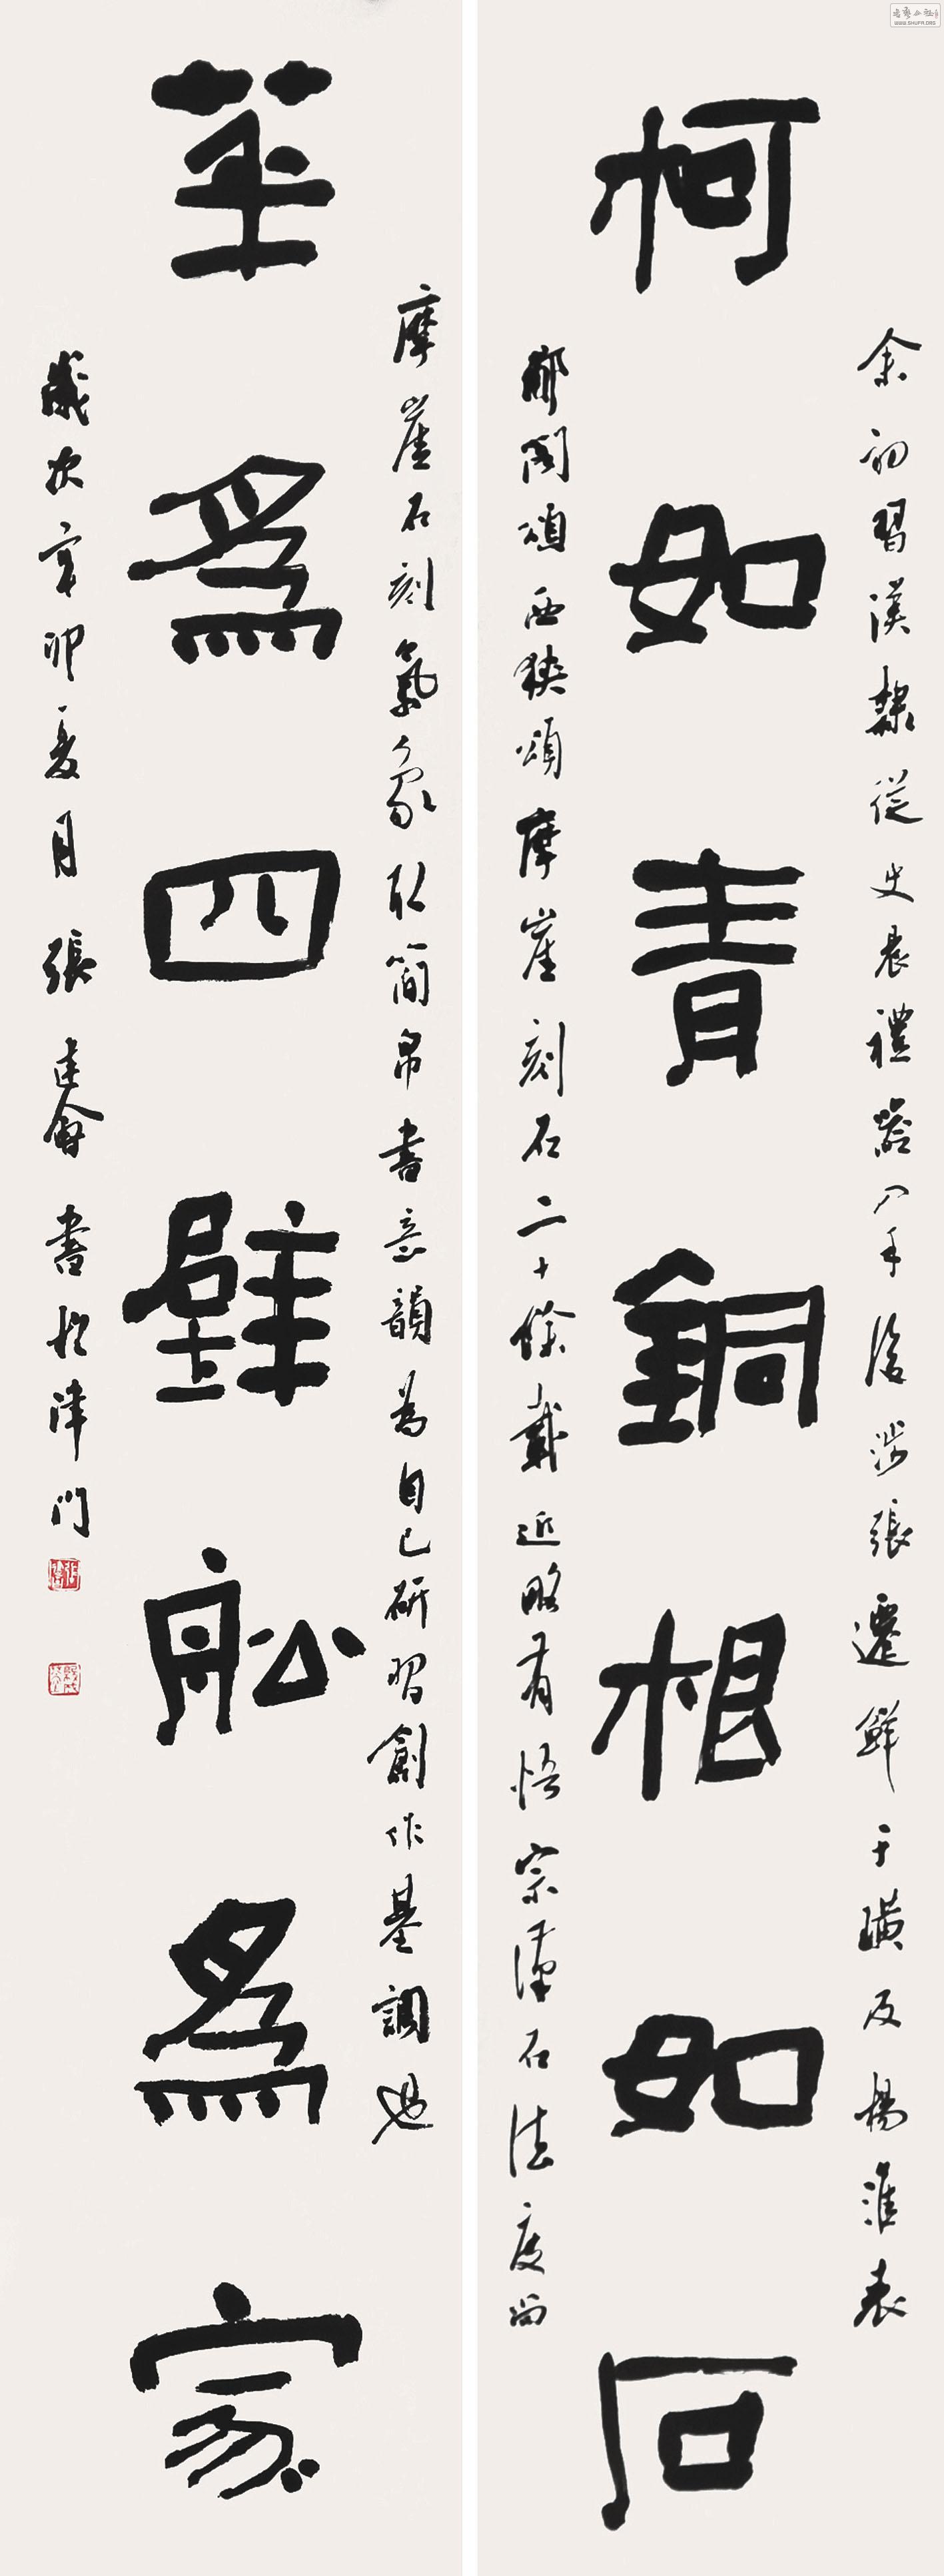 柯如青銅根如石
余初習漢隸從史晨禮器入手後涉張遷鮮于璜及楊淮表
郙閣頌西狹頌摩崖刻石二十餘載近略有悟宗漢石法度尚
華爲四壁舩爲家
摩崖石刻氣象取簡帛書意韻為自己研習創作基調也
歲次辛卯夏月張建會書於津門
WWW.SHUFA.ORG